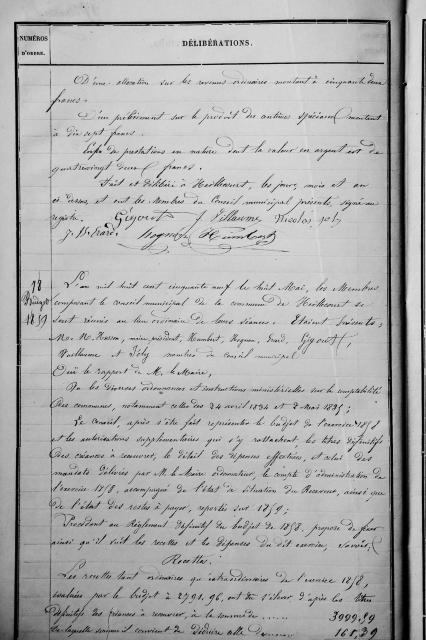 NUMÉROS
D'ORDRE.
DÉLIBÉRATIONS.
D'une allocation sur les revenus ordinaires montant à cinquante deux
francs.
D'un prélèvement sur le produit des centimes spéciaux montant
à dix sept francs.
Enfin de prestations en nature dont la valeur en argent est de
quatrevingt deux francs.
Fait et délibéré à les jour, mois et an
et ont les Membres du Conseil municipal présents, signé au
registre.
Gigout J Villaume Nicolas Joly
Humbert
18
Budget
1859
L'an mil huit cent cinquante neuf le huit Mai, les Membres
composant le conseil municipal de la commune de se
sont réunis au lieu ordinaire de leurs séances. Étaient présents:
M. N. maire, président, Humbert, Gigout,
Guillaume et Joly membres du conseil municipal.
Ouï le rapport de M. le Maire,
Vu les diverses ordonnances et instructions ministérielles sur la comptabilité
des communes, notamment celles des 24 avril 1834 et 2 Mai 1835;
Le Conseil, après s'être fait représenter le budget de l'exercice 1858
et les autorisations supplémentaires qui s'y rattachent, les titres définitifs
des créances à recouvrer, le détail des dépenses effectuées, et celui des
mandats délivrés par M. le Maire ordonnateur, le compte d'administration de
l'exercice 1858, accompagné de l'état de situation du Receveur, ainsi que
de l'état des restes à payer, reportés sur 1859;
Procédant au Règlement définitif du budget de 1858, propose de fixer
ainsi qu'il suit les recettes et les dépenses du dit exercice, savoir:
Recettes.
Les recettes tant ordinaires qu'extraordinaires de l'exercice 1858,
évaluées par le budget à 2791.96, ont dû s'élever d'après les titres
définitifs des créances à recouvrer, à la somme de 3999.59
de laquelle somme il convient de déduire celle de 161.29